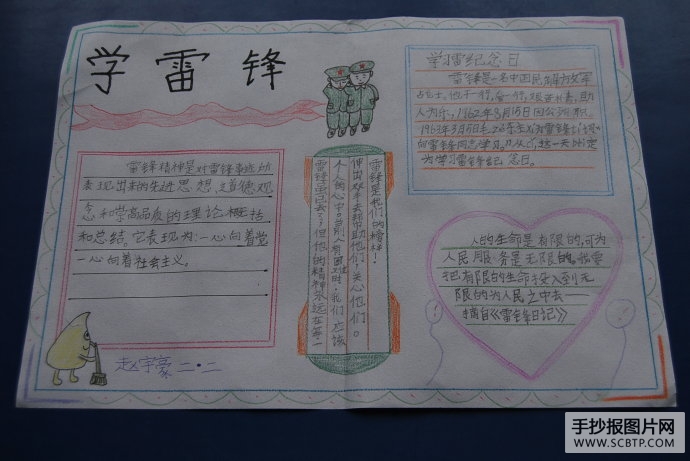 学雷锋
雷锋精神是对雷锋事迹所
表现出来的先进思想、道德观
念和崇高品质的理论概括
和总结。它表现为:一心向着党
一心向着社会主义。
雷锋是我们的榜样!
伸出双手去帮助他们!关心他们。
个人的心中。当别人有困难时,我们应该
雷锋虽已去了,但他的精神永远在每一
学雷纪念日
雷锋是一名中国民解放军
占士,他干一行,爱一行,艰苦朴素,助
人为乐,1962年8月15日因公殉职。
1963年3月5日毛
向雷锋同志学习,从此,这一天所定
为学习雷锋纪念日。
人的生命是有限的,可为
人民服务是无限的,我要
把有限的生命投入到无
限的为人民之中去——
摘自《雷锋日记》
赵宇豪 二·二
手抄报图片网
WWW.SCBTP.COM